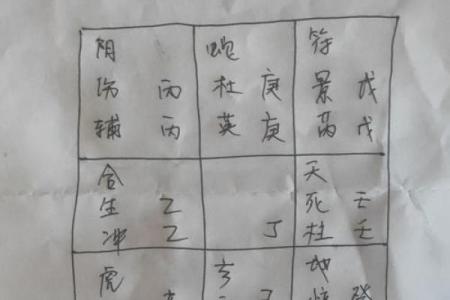 阴
伤 丙
辅 丙
蛇
杜 庚
英 庚
符
景 戊
芮 戊
合
生 乙
冲 乙
丁
天
死 壬
柱 壬
虎
玄
地